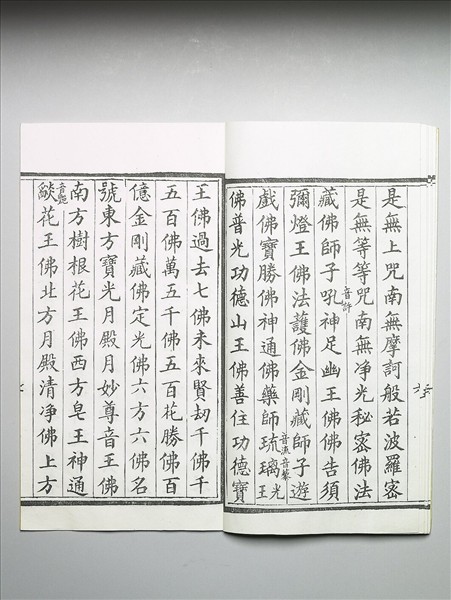 是無上咒南無摩訶般若波羅密
是無等等咒南無淨光秘密佛法
藏佛師子吼音許神足幽王佛佛告須
彌燈王佛法護佛金剛藏師子遊
戲佛寶勝佛神通佛藥師琉音流璃音黎光王
佛普光功德山王佛善住功德寶
王佛過去七佛未來賢劫千佛千
五百佛萬五千佛五百花勝佛百
億金剛藏佛定光佛六方六佛名
號東方寶光月殿月妙尊音王佛
南方樹根花王佛西方皂王神通
燄音艷花王佛北方月殿清淨佛上方